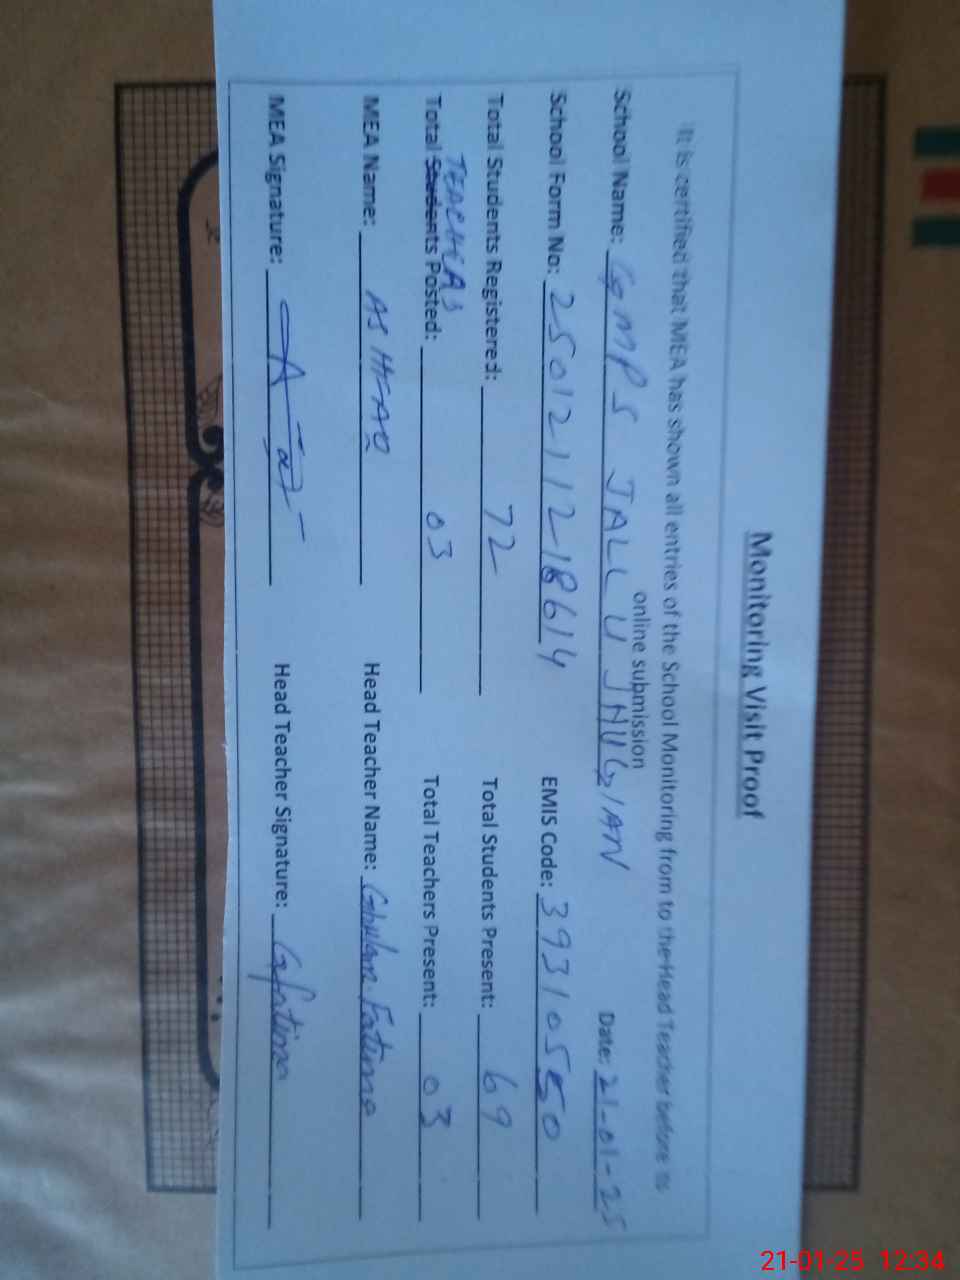 Monitoring Visit Proof
It is certified that MEA has shown all entries of the School Monitoring from to the Head Teacher before to
online submission
School Name: GMPS JALLU JHUGIAN Date: 21-01-25
School Form No: 2501211218614 EMIS Code: 39310550
Total Students Registered: 72 Total Students Present: 69
TEACHERS
Total Students Posted: 03 Total Teachers Present: 03
MEA Name: ASHFAQ Head Teacher Name: Ghulam Fatima
MEA Signature: Head Teacher Signature: Gfatima
21-01-25 12:34